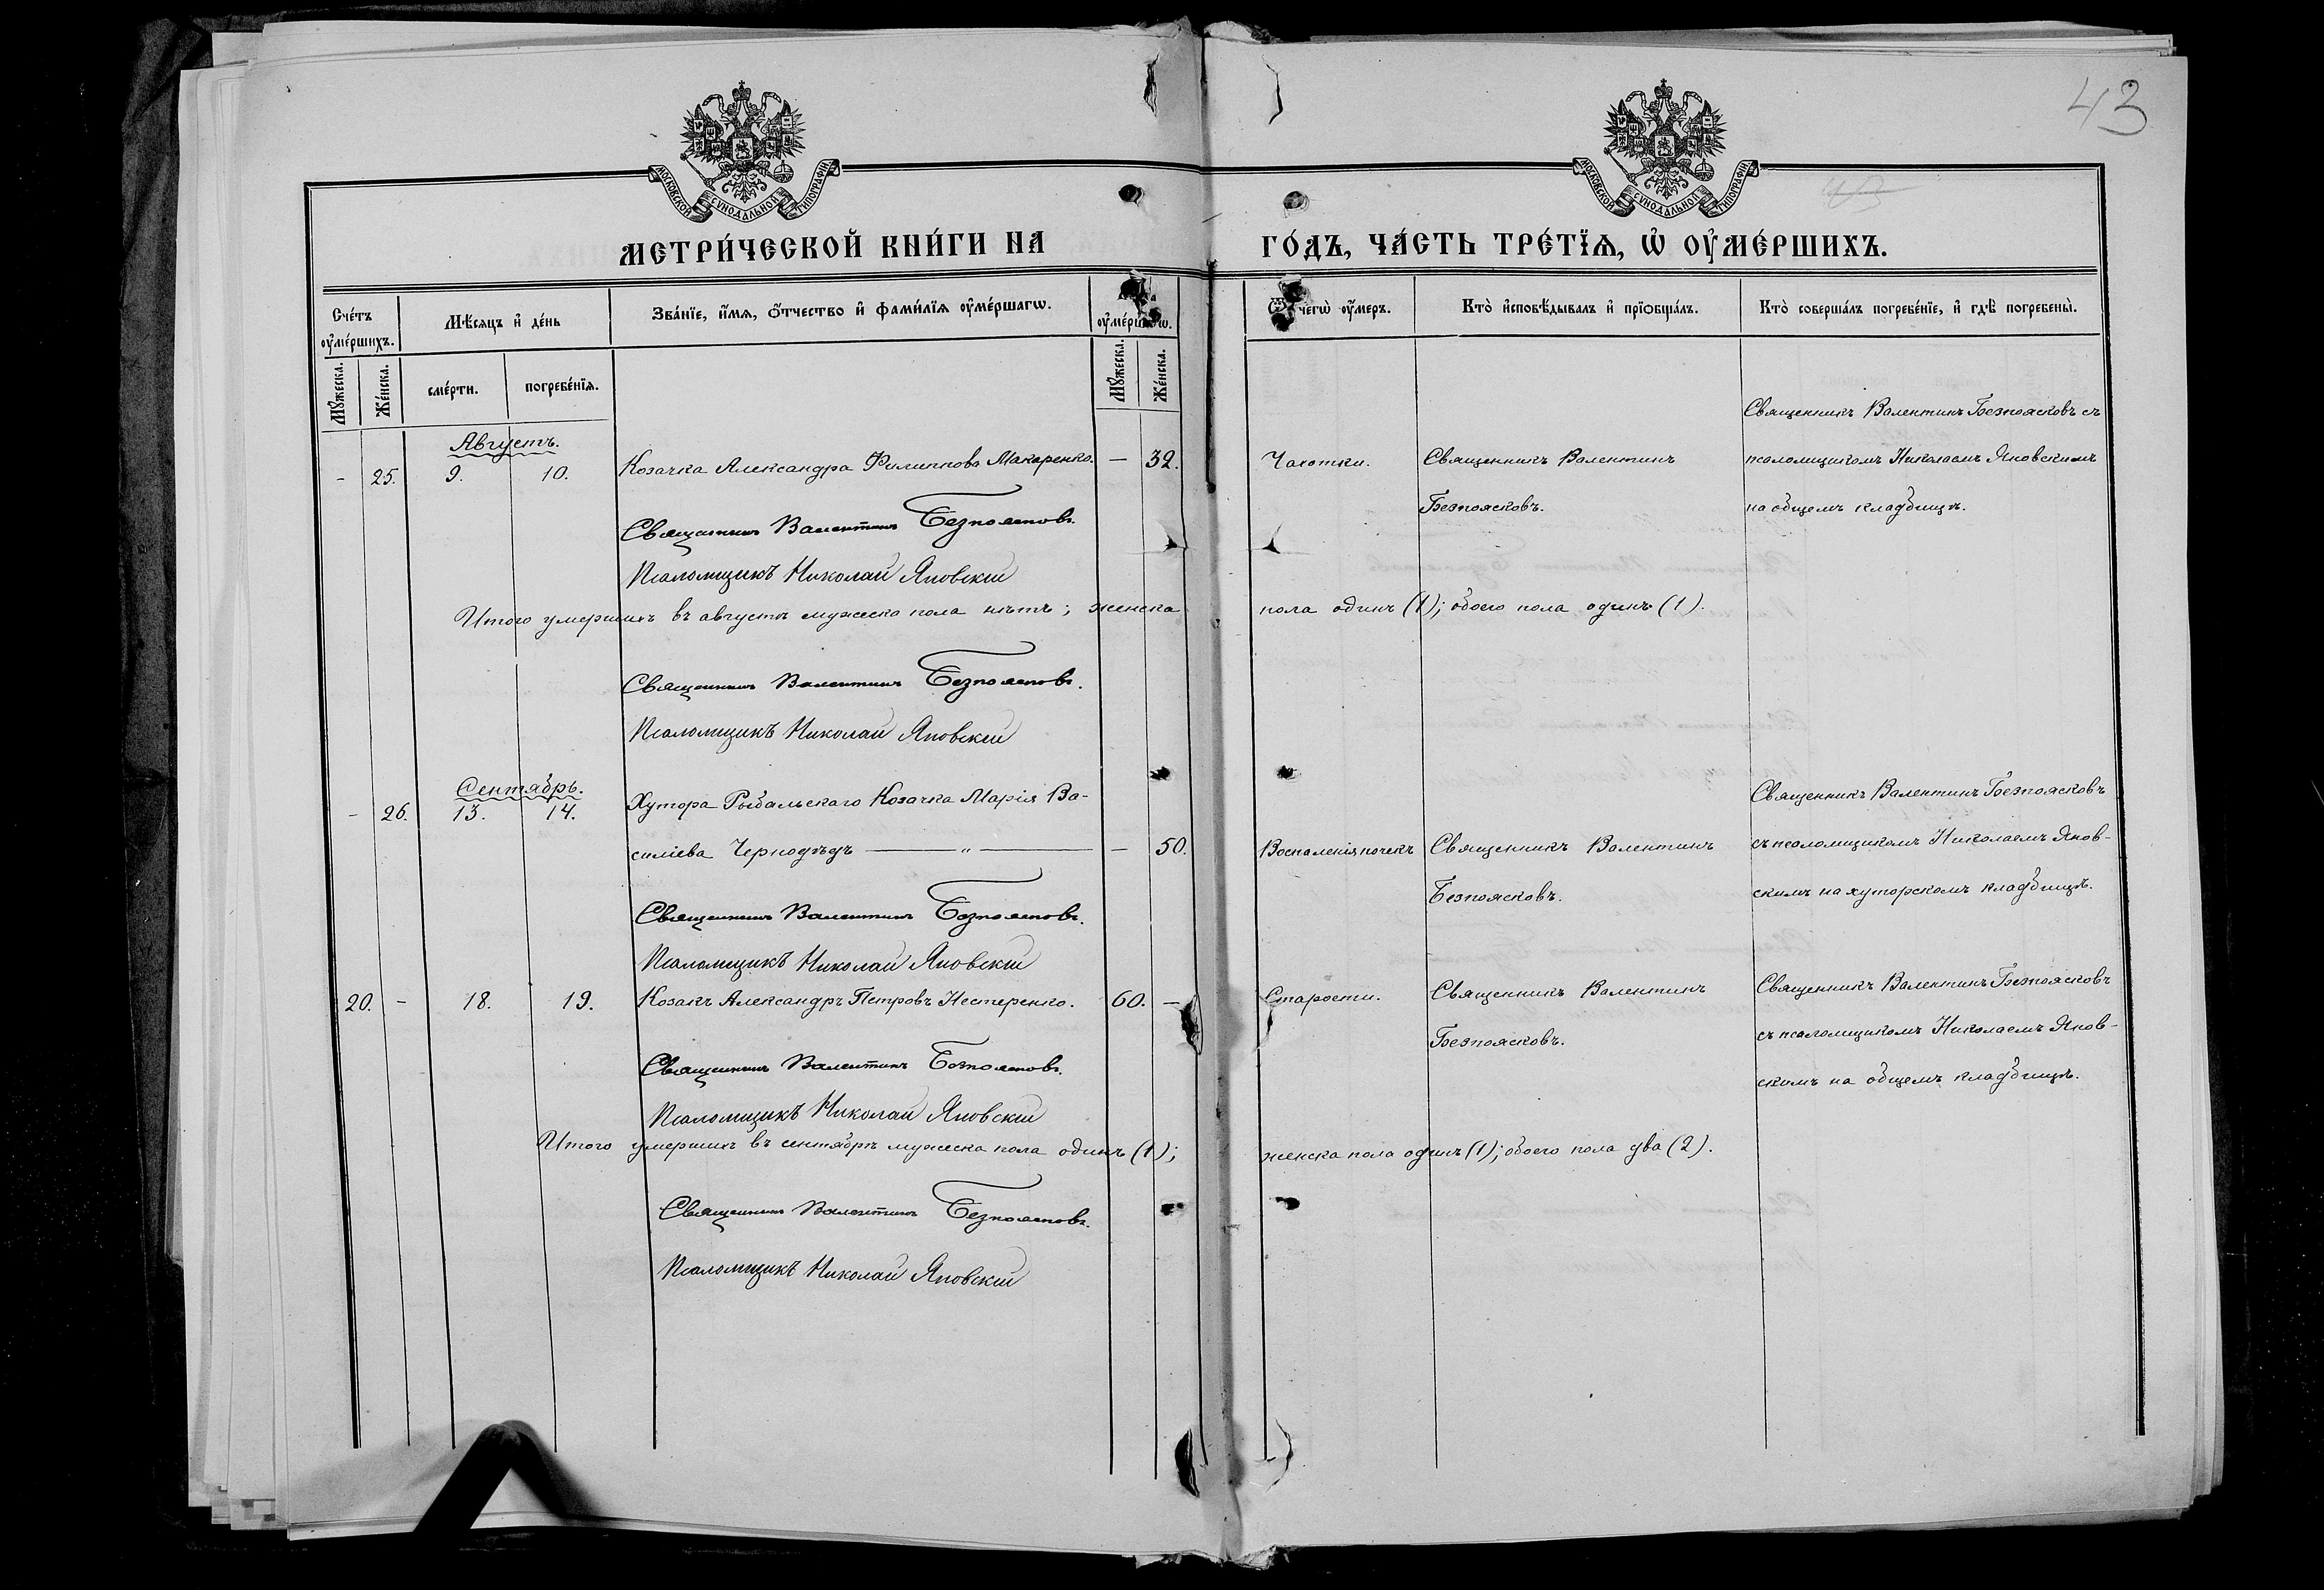 43
МОСКОВСКОЙ СѴНОДАЛЬНОЙ ТИПОГРАФІИ
МОСКОВСКОЙ СѴНОДАЛЬНОЙ ТИПОГРАФІИ
МЕТРИ́ЧЕСКОЙ КНИ́ГИ НА
ГО́ДЪ, ЧА́СТЬ ТРЕ́ТЇѦ, Ѡ҆ ОУ҆МЕ́РШИХЪ.
Сче́тъ оу҆ме́ршихъ.
Мѣ́сѧцъ и҆ де́нь
Зва́нїе, и҆́мѧ, ѻ҆́тчество и҆ фами́лїѧ оу҆ме́ршагѡ.
оу҆ме́ршагѡ.
чегѡ̀ оу҆́меръ.
Кто̀ и҆сповѣ́дывалъ и҆ прїѻбща́лъ.
Кто̀ соверша́лъ погребе́нїе, и҆ гдѣ̀ погребены̀.
Мꙋ́жеска.
Же́нска.
сме́рти.
погребе́нїѧ.
Мꙋ́жеска.
Же́нска.
Августъ.
- 25. 9. 10. Козачка Александра Филиппова Макаренко. — 32. Чахотки. Священникъ Валентинъ
Безпоясковъ.
Священникъ Валентинъ Безпоясковъ съ
псаломщикомъ Николаемъ Яновскимъ
на общемъ кладбищѣ.
Священникъ Валентинъ Безпоясковъ.
Псаломщикъ Николай Яновскій
Итого умершихъ въ августѣ мужеска пола нѣтъ; женска пола одинъ (1); обоего пола одинъ (1).
Священникъ Валентинъ Безпоясковъ.
Псаломщикъ Николай Яновскій
Сентябрь.
- 26. 13. 14. Хутора Рыбальскаго Козачка Марія Ва-
силіева Чернодѣдъ — " — — 50. Воспаленія почекъ Священникъ Валентинъ
Безпоясковъ.
Священникъ Валентинъ Безпоясковъ
съ псаломщикомъ Николаемъ Янов-
скимъ на хуторскомъ кладбищѣ.
Священникъ Валентинъ Безпоясковъ.
Псаломщикъ Николай Яновскій
20. - 18. 19. Козакъ Александръ Петровъ Нестеренко. 60. — Старости. Священникъ Валентинъ
Безпоясковъ.
Священникъ Валентинъ Безпоясковъ
съ псаломщикомъ Николаемъ Янов-
скимъ на общемъ кладбищѣ.
Священникъ Валентинъ Безпоясковъ.
Псаломщикъ Николай Яновскій
Итого умершихъ въ сентябрѣ мужеска пола одинъ (1); женска пола одинъ (1); обоего пола два (2).
Священникъ Валентинъ Безпоясковъ.
Псаломщикъ Николай Яновскій